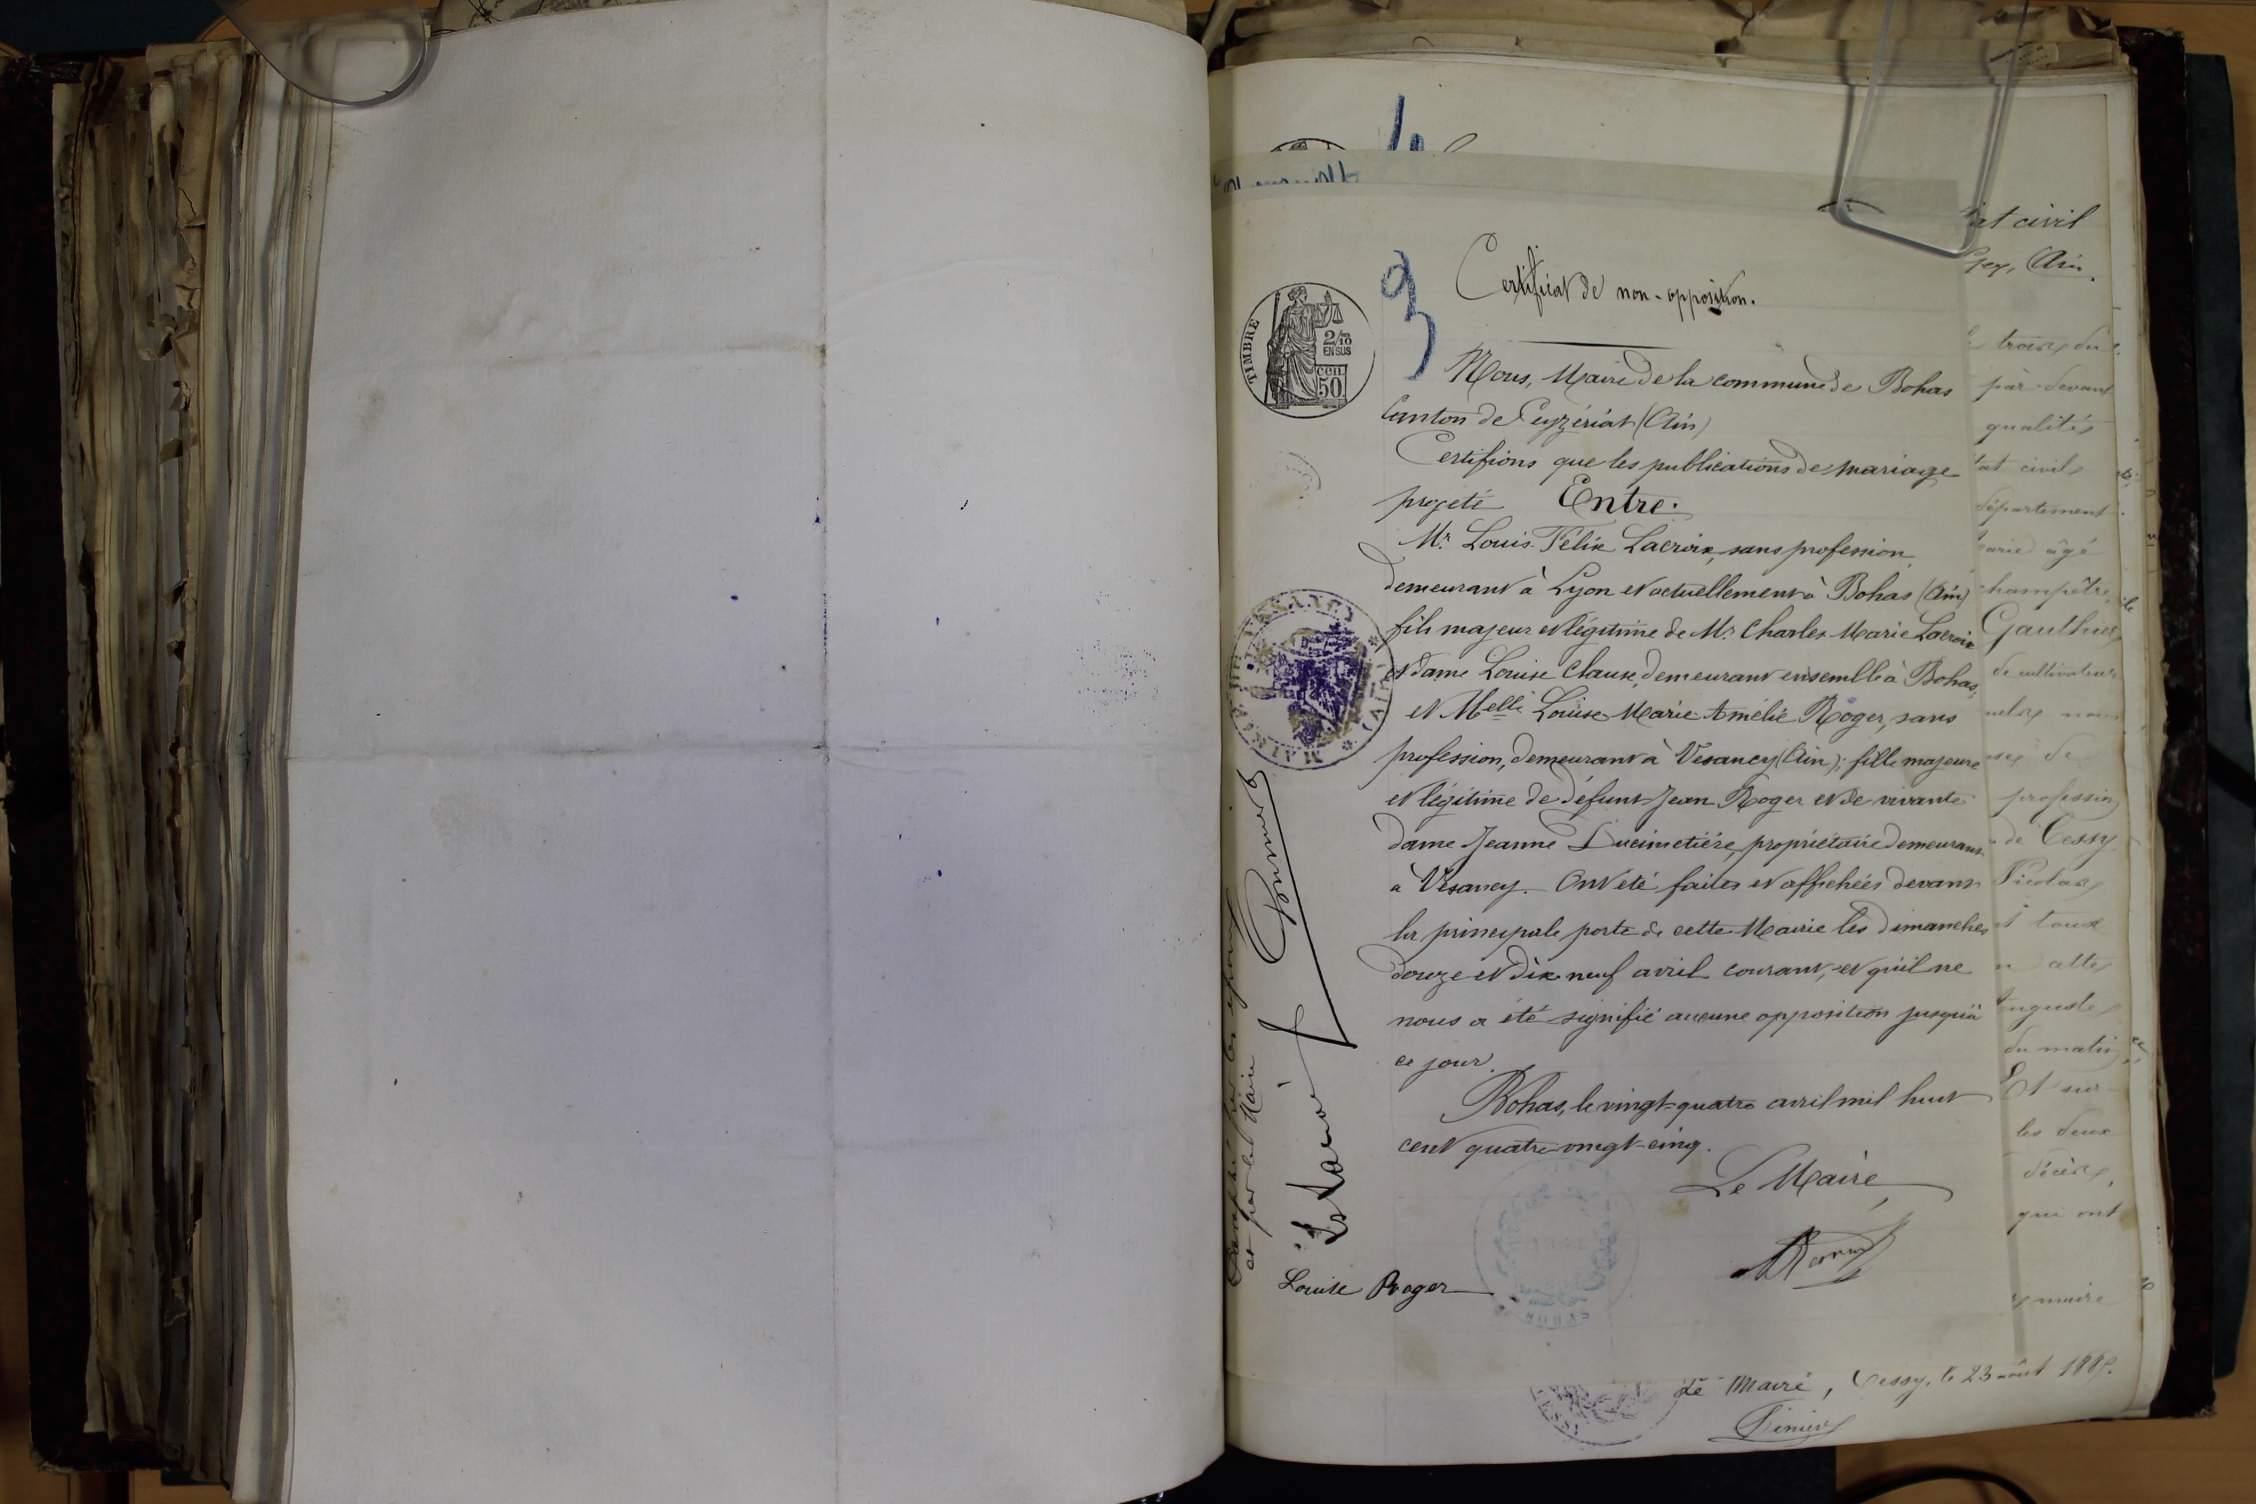 Certificat de non-opposition.
TIMBRE
2/10
EN SUS
CEN.
50
9
Nous, Maire de la commune de Bohas
Canton de Ceyzériat (Ain)
Certifions que les publications de mariage
projeté Entre.
Mr. Louis Félix Lacroix, sans profession,
demeurant à Lyon et actuellement à Bohas (Ain)
fils majeur et légitime de Mr. Charles Marie Lacroix
et dame Louise Clause, demeurant ensemble à Bohas,
et Melle Louise Marie Amélie Roger, sans
profession, demeurant à Vesancy (Ain); fille majeure
et légitime de défunt Jean Roger et de vivante
dame Jeanne Ducimetière, propriétaire demeurant
à Vesancy. Ont été faites et affichées devant
la principale porte de cette Mairie les dimanches
douze et dix neuf avril courant, et qu'il ne
nous a été signifié aucune opposition jusqu'à
ce jour.
Bohas, le vingt-quatre avril mil huit
cent quatre-vingt-cinq.
Le Maire,
Louise Roger
par les époux
et par le Maire
MAIRIE DE VESANCY
(AIN)
at civil
Gex, Ain.
trois du
par-devant
qualités
tat civil
département
marié âgé
champêtre
Gauthier
de cultivateur
profession
de Cessy
Nicolas
et tous
Auguste
du matin
Et sur
les deux
décès,
qui ont
maire
Le Maire, Cessy, le 23 août